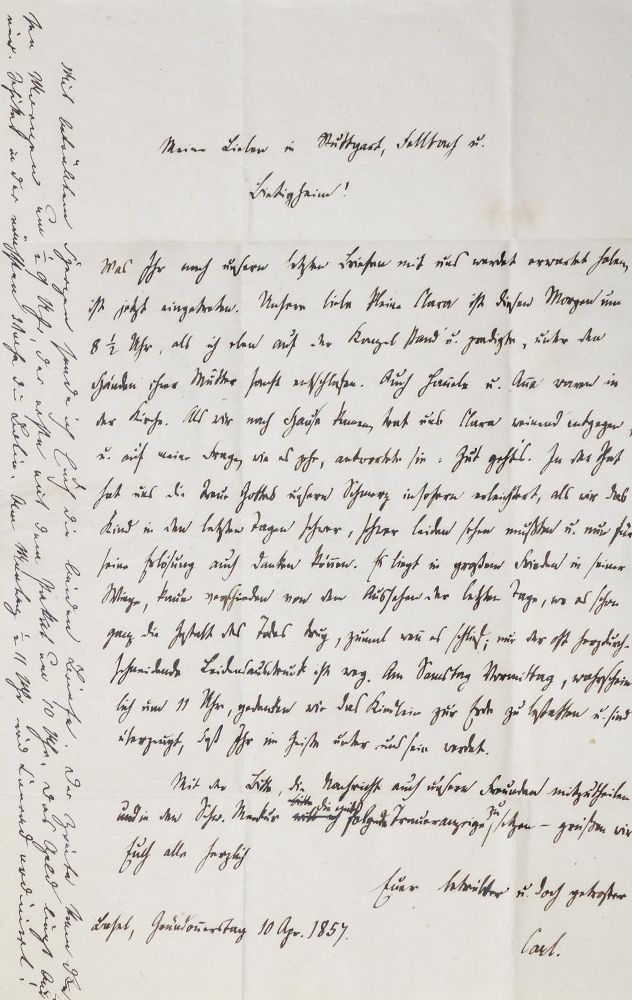 Meine Lieben in Stuttgart, Fellbach u.
Bietigheim!
Was Ihr nach unsern letzten Briefen mit uns werdet erwartet haben,
ist jetzt eingetreten. Unsere liebe kleine Clara ist diesen Morgen um
8 ½ Uhr, als ich eben auf der Kanzel stand u. predigte, unter den
Händen ihrer Mutter sanft entschlafen. Auch u. waren in
der Kirche. Als wir nach Hause kamen, trat uns Clara weinend entgegen,
u. auf meine Frage, wie es gehe, antwortete sie: Gut geht's. In der That
hat uns die Treue Gottes unsern Schmerz insofern erleichtert, als wir das
Kind in den letzten Tagen schwer, schwer leiden sehen mußten u. nun für
seine Erlösung auch danken können. Es liegt in großem Frieden in seiner
Wiege, kaum verschieden von dem Aussehen der letzten Tage, wo es schon
ganz die Gestalt des Todes trug, zumal wenn es schlief; nur der oft herzdurch-
schneidende Leidensausdruck ist weg. Am Samstag Vormittag, wahrschein
lich um 11 Uhr, gedenken wir das Kindlein zur Erde zu bestatten u. sind
überzeugt, daß Ihr im Geiste unter uns sein werdet.
Mit der Bitte, die Nachricht auch unsern Freunden mitzutheilen
und in den Schw. Merkur bitte die Traueranzeige zu setzen – grüßen wir
Euch alle herzlich
Euer betrübter u. doch getroster
Carl.
Basel, Gründonnerstag 10 Apr. 1857.
Mit betrübtem Herzen sende ich Euch die beiden Briefe. Der kam
Morgen um ½ 9 Uhr, der erste mit dem um 10 Uhr. Das Geld liegt
in der nächsten Woche die 11 Uhr wird